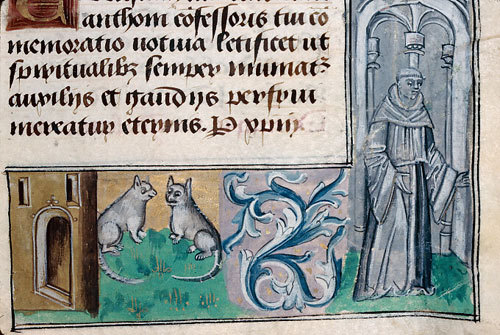 anthonij cõfessoris tui co
memoratio uotiua letificet ut
spiritualibꝫ semper muniatꝫ
auxilijs et gaudijs perfrui
mereatur eternis. P xp̄m